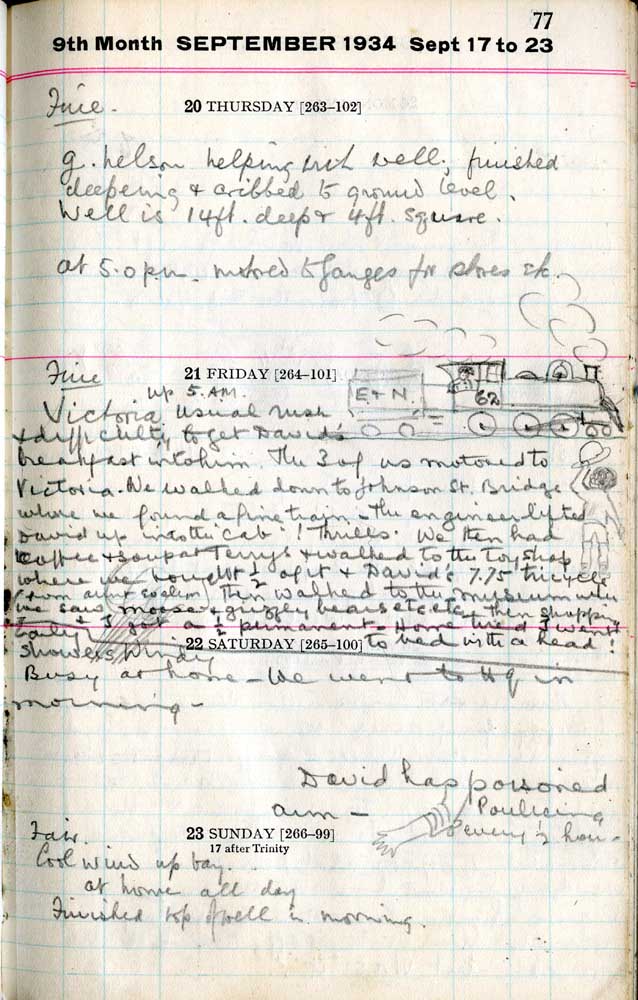 77
9th Month SEPTEMBER 1934 Sept 17 to 23
Fine.
20 THURSDAY [263-102]
G. Nelson helping with well; finished
deepening & cribbed to ground level.
Well is 14ft. deep & 4ft. square.
at 5.0 p.m. motored to Ganges for stores etc.
Fine
21 FRIDAY [264-101]
up 5. A.M.
E & N.
62
Victoria, usual rush
& difficulty to get David's
breakfast into him. The 3 of us motored to
Victoria. We walked down to Johnson St. Bridge
where we found a fine train - the engineer lifted
David up into the cab! Thrills. We then had
coffee & soup at Terry's & walked to the toy shop
where we bought ½ of it & David's 7.75 tricycle
(from aunt Evelyn) Then walked to the museum where
we saw moose & grizzly bears etc etc, then shopping
& I got a ½ permanent - Home tired I went
to bed with a head!
Early
showers Windy
22 SATURDAY [265-100]
Busy at home - We went to HQ in
morning -
David has poisoned
arm -
Poulticing
every 2 hours -
Fair.
23 SUNDAY [266-99]
17 after Trinity
Cool wind up bay.
at home all day
Finished top of well in morning.